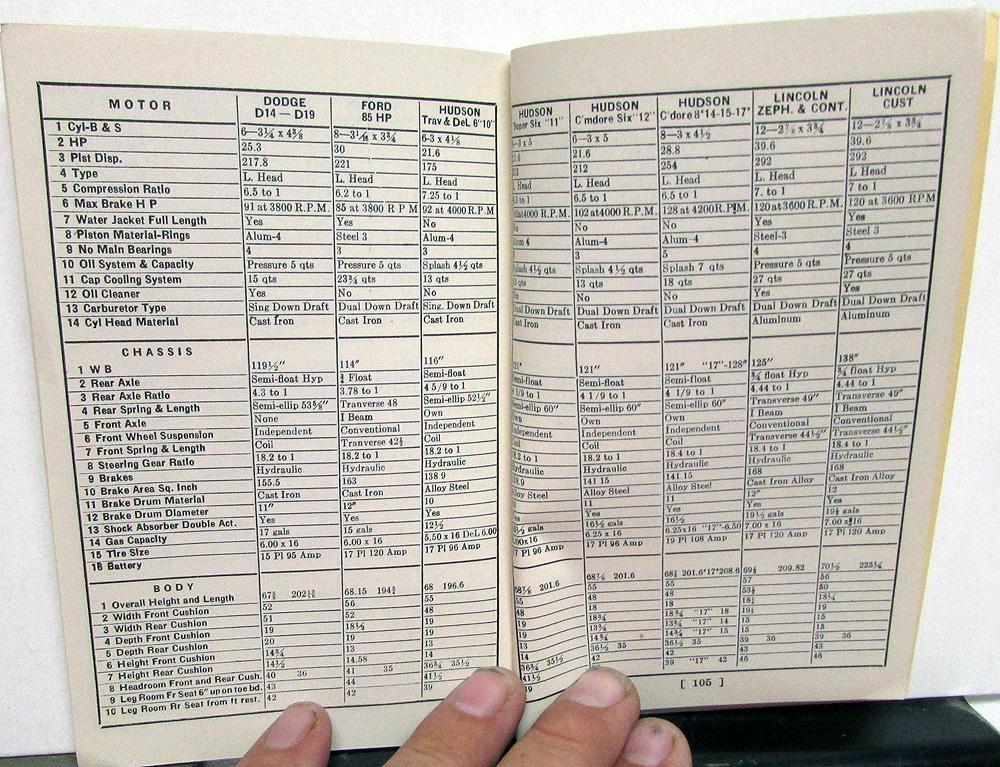 MOTOR DODGE D14 — D19 FORD 85 HP HUDSON Trav & DeL 6"10" HUDSON Super Six "11" HUDSON C'mdore Six "12" HUDSON C'dore 8"14-15-17" LINCOLN ZEPH. & CONT. LINCOLN CUST
1 Cyl-B & S 6—3¼ x 4⅜ 8—3 1/16 x 3¾ 6-3 x 4⅛ —3 x 5 6—3 x 5 8—3 x 4½ 12—2⅞ x 3¾ 12—2⅞ x 3¾
2 HP 25.3 30 21.6 21.6 28.8 39.6 39.6
3 Pist Disp. 217.8 221 175 212 254 292 292
4 Type L. Head L. Head L. Head L. Head L. Head L. Head L. Head L Head
5 Compression Ratio 6.5 to 1 6.2 to 1 7.25 to 1 .5 to 1 6.5 to 1 6.5 to 1 7. to 1 7 to 1
6 Max Brake H P 91 at 3800 R.P.M. 85 at 3800 R P M 92 at 4000 R.P.M. at 4000 R.P.M. 102 at 4000 R.P.M. 128 at 4200 R.P.M. 120 at 3600 R.P.M. 120 at 3600 RPM
7 Water Jacket Full Length Yes Yes No No No No Yes Yes
8 Piston Material-Rings Alum-4 Steel 3 Alum-4 Alum 4 Alum-4 Alum-4 Steel-3 Steel 3
9 No Main Bearings 4 3 3 3 5 4 4
10 Oil System & Capacity Pressure 5 qts Pressure 5 qts Splash 4½ qts Splash 4½ qts Splash 4½ qts Splash 7 qts Pressure 5 qts Pressure 5 qts
11 Cap Cooling System 15 qts 23¾ qts 13 qts qts 13 qts 18 qts 27 qts 27 qts
12 Oil Cleaner Yes No No No No No Yes Yes
13 Carburetor Type Sing Down Draft Dual Down Draft Sing. Down Draft Dual Down Draft Dual Down Draft Dual Down Draft Dual Down Draft Dual Down Draft
14 Cyl Head Material Cast Iron Cast Iron Cast Iron Cast Iron Cast Iron Cast Iron Aluminum Aluminum
CHASSIS
1 W B 119½" 114" 116" 121" 121" 121" "17"-128" 125" 138"
2 Rear Axle Semi-float Hyp ¾ Float Semi-float Semi-float Semi-float Semi-float ¾ float Hyp ¾ float Hyp
3 Rear Axle Ratio 4.3 to 1 3.78 to 1 4 5/9 to 1 1/9 to 1 4 1/9 to 1 4 1/9 to 1 4.44 to 1 4.44 to 1
4 Rear Spring & Length Semi-ellip 53⅝" Tranverse 48 Semi-ellip 52½" Semi-ellip 60" Semi-ellip 60" Semi-ellip 60" Transverse 49" Transverse 49"
5 Front Axle None I Beam Own Own Own Own I Beam I Beam
6 Front Wheel Suspension Independent Conventional Independent Independent Independent Independent Conventional Conventional
7 Front Spring & Length Coil Tranverse 42¾ Coil Coil Coil Coil Transverse 44½" Transverse 44½"
8 Steering Gear Ratio 18.2 to 1 18.2 to 1 18.2 to 1 18.2 to 1 18.2 to 1 18.4 to 1 18.4 to 1 18.4 to 1
9 Brakes Hydraulic Hydraulic Hydraulic Hydraulic Hydraulic Hydraulic Hydraulic Hydraulic
10 Brake Area Sq. Inch 155.5 163 138 9 141 15 141.15 168 168
11 Brake Drum Material Cast Iron Cast Iron Alloy Steel Alloy Steel Alloy Steel Alloy Steel Cast Iron Alloy Cast Iron Alloy
12 Brake Drum Diameter 11" 12" 10 11 11 12" 12
13 Shock Absorber Double Act. Yes Yes Yes Yes Yes Yes Yes Yes
14 Gas Capacity 17 gals 15 gals 12½ gals 16½ gals 16½ 19½ gals 19½ gals
15 Tire Size 6.00 x 16 6.00 x 16 5.50 x 16 DeL 6.00 x16 6.25 x 16 6.25x16 "17"-6.50 7.00 x 16 7.00 x 16
16 Battery 15 Pl 95 Amp 17 Pl 120 Amp 17 Pl 96 Amp 17 Pl 96 Amp 17 Pl 96 Amp 19 Pl 108 Amp 17 Pl 120 Amp 17 Pl 120 Amp
BODY
1 Overall Height and Length 68.15 68 196.6 201.6 201.6 201.6"17"208.6 209.82
2 Width Front Cushion 52 56 55 55 55 55 57 56
3 Width Rear Cushion 51 52 48 48 48 48 50
4 Depth Front Cushion 19 18½ 19 18 18
5 Depth Rear Cushion 20 19 19 19 "17" 18 19
6 Height Front Cushion 14¾ 13 13 13 "17" 14 15 15
7 Height Rear Cushion 14½ 14.58 14 14 "17" 15 15 15
8 Headroom Front and Rear Cush. 40 36 41 35 36¾ 35½ 36¾ 35½ 36½ 35 36½ 35 39 36 39 36
9 Leg Room Fr Seat 6" up on toe bd. 43 44 41½ 41½ 42 42 43 43
10 Leg Room Rr Seat from ft rest. 42 42 39 39 39 "17" 42 46 46
[ 105 ]